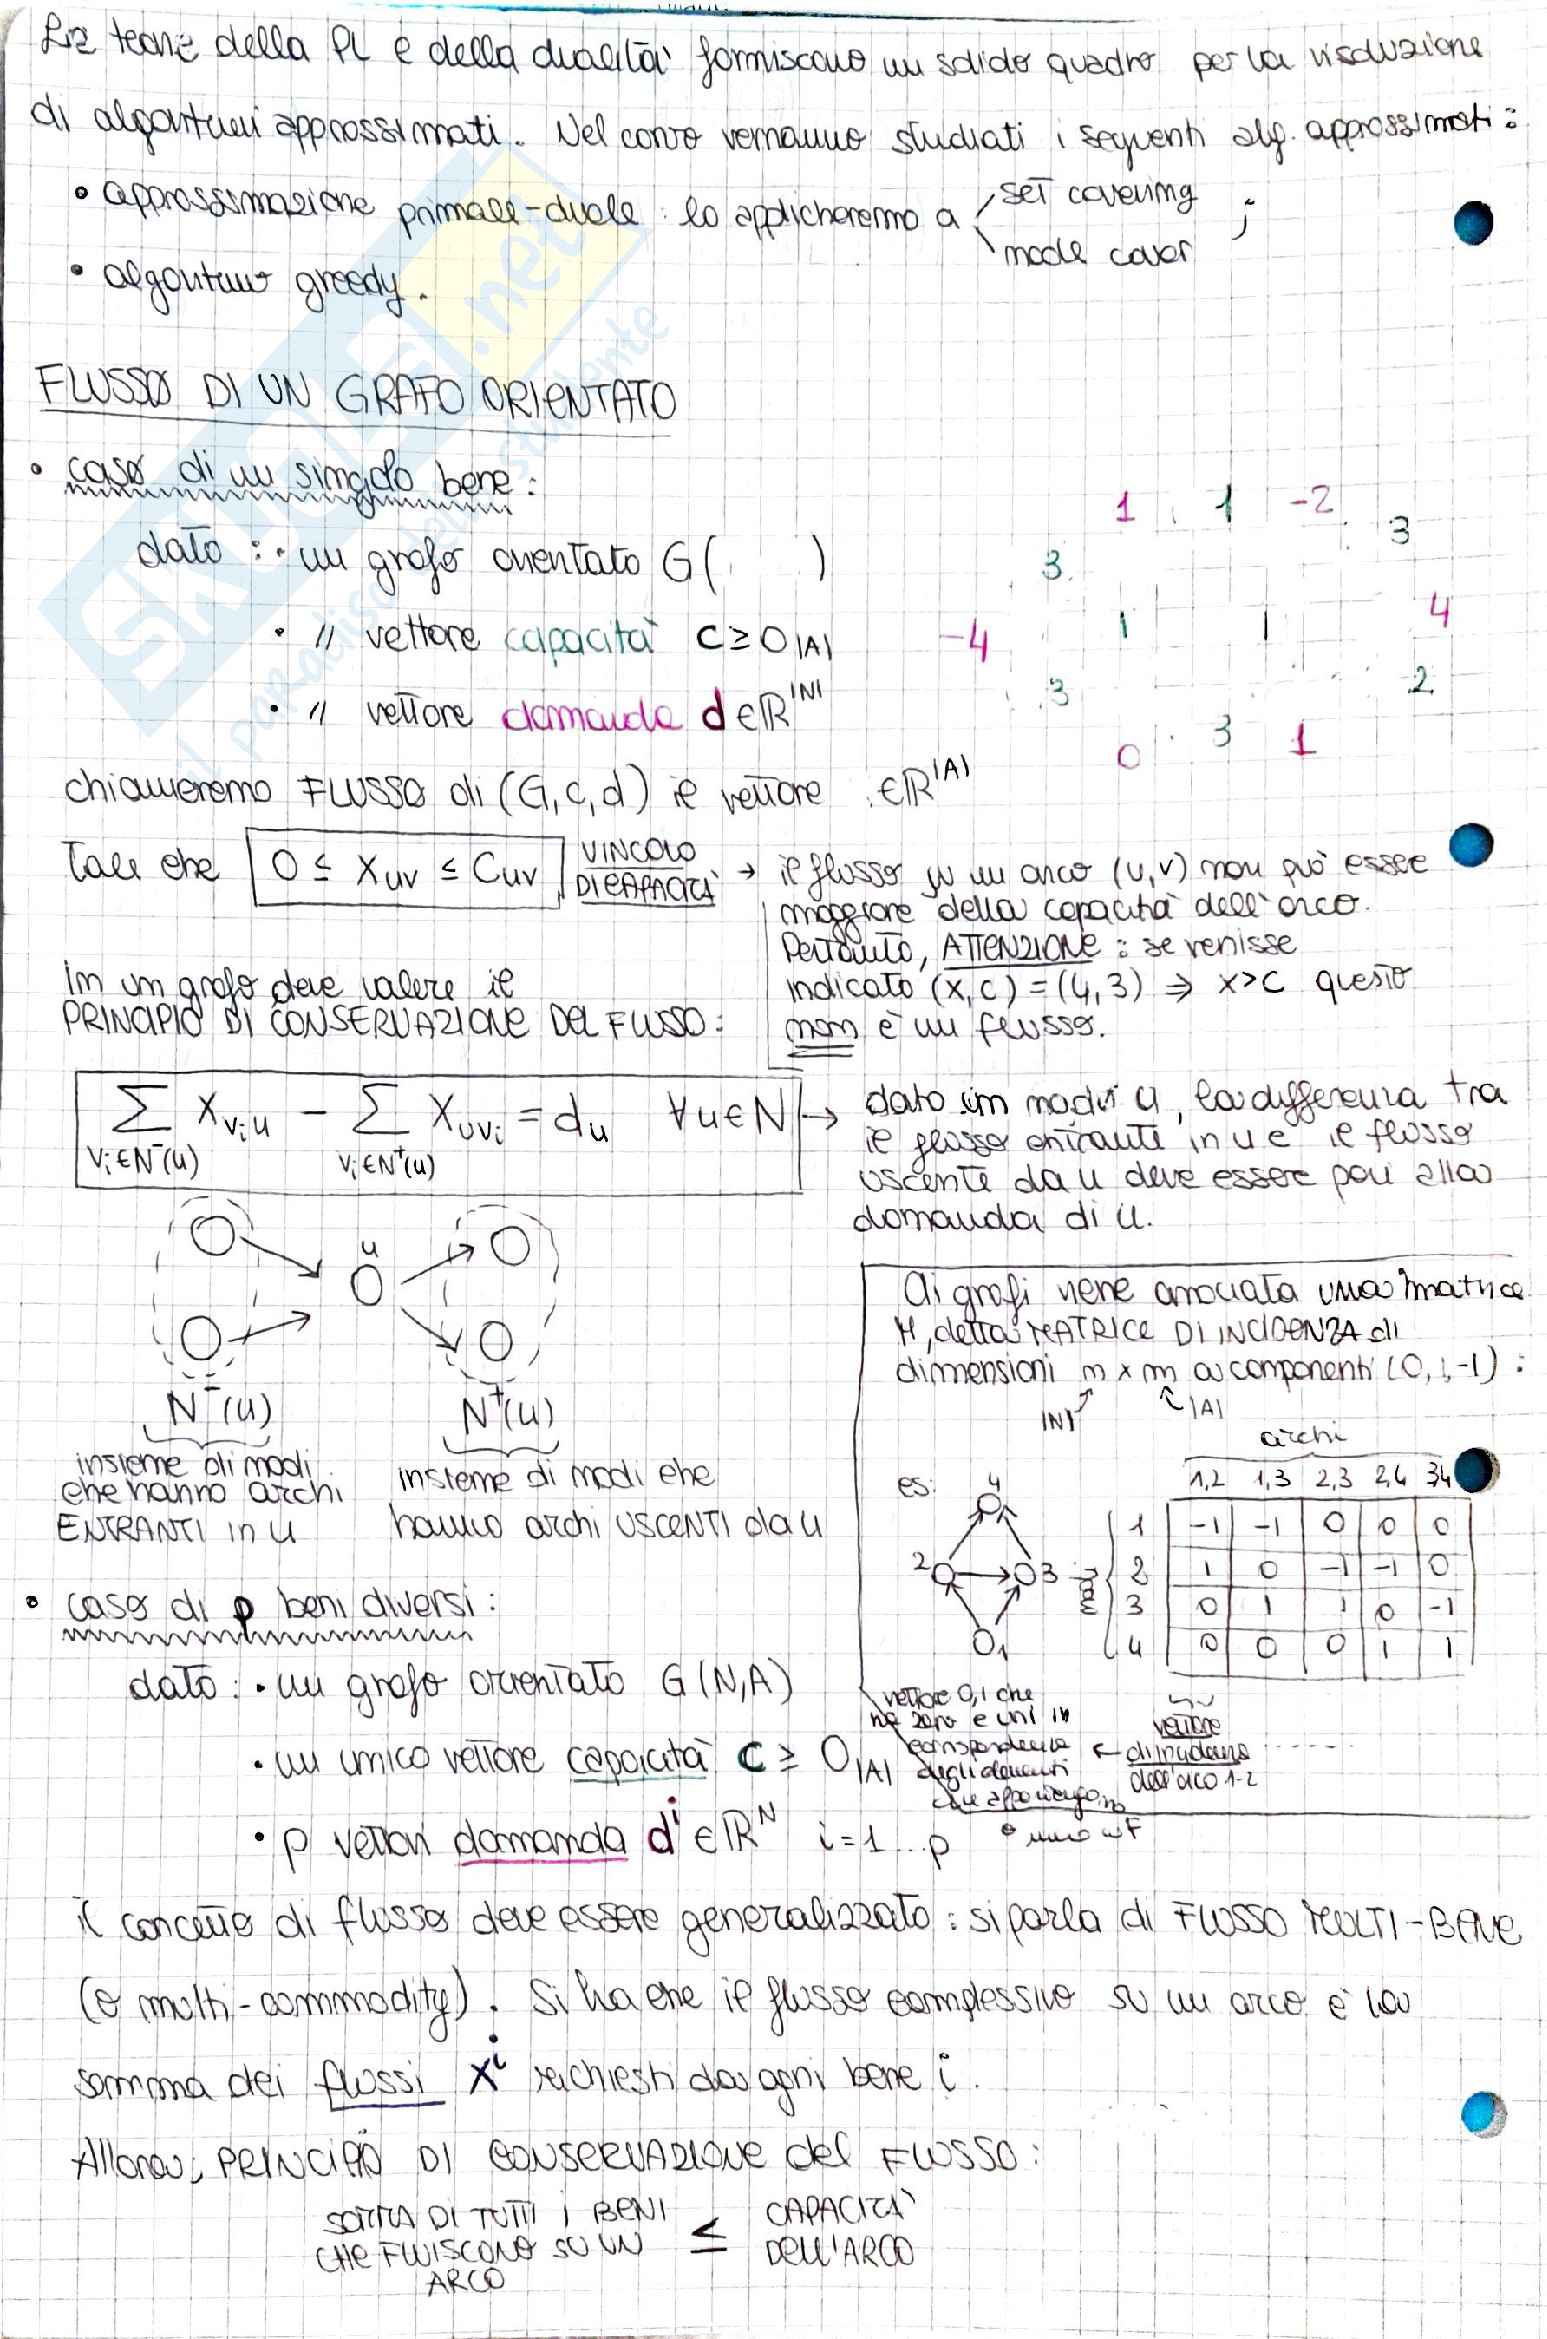 Le teorie della PL e della dualità forniscono un solido quadro per la risoluzione
di algoritmi approssimati. Nel corso verranno studiati i seguenti alg. approssimati:
• approssimazione primale-duale: lo applicheremo a set covering ;
node cover
• algoritmo greedy.
FLUSSO DI UN GRAFO ORIENTATO
• caso di un singolo bene:
dato: • un grafo orientato G( )
• // vettore capacità c ≥ 0|A|
• // vettore domanda d ∈ ℝ|N|
1 1 -2
3 3
-4 1 1 4
3 2
0 3 1
chiameremo FLUSSO di (G, c, d) il vettore ∈ ℝ|A|
tale che 0 ≤ Xuv ≤ Cuv VINCOLO DI CAPACITÀ → il flusso su un arco (u,v) non può essere
maggiore della capacità dell'arco.
Pertanto, ATTENZIONE: se venisse
indicato (x,c) = (4,3) ⇒ x>c questo
non è un flusso.
in un grafo deve valere il
PRINCIPIO DI CONSERVAZIONE DEL FLUSSO:
∑ Xviu - ∑ Xuvi = du ∀u∈N → dato un nodo u, la differenza tra
vi∈N⁻(u) vi∈N⁺(u)
il flusso entrante in u e il flusso
uscente da u deve essere pari alla
domanda di u.
u
N⁻(u) N⁺(u)
insieme di nodi
che hanno archi
ENTRANTI in u
insieme di nodi che
hanno archi USCENTI da u
Ai grafi viene associata una matrice
M, detta MATRICE DI INCIDENZA di
dimensioni n x m a componenti (0, 1, -1):
|N| |A|
archi
es: 1,2 1,3 2,3 2,4 34
4
2 3
1
nodi
1 -1 -1 0 0 0
2 1 0 -1 -1 0
3 0 1 1 0 -1
4 0 0 0 1 1
vettore 0,1 che
ha zero e uni in
corrispondenza
degli elementi
che appartengono
vettore
di incidenza
dell'arco 1-2
• caso di p beni diversi:
dato: • un grafo orientato G(N,A)
• un unico vettore capacità c ≥ 0|A|
• p vettori domanda dⁱ ∈ ℝᴺ i=1...p
il concetto di flusso deve essere generalizzato: si parla di FLUSSO MULTI-BENE
(o multi-commodity). Si ha che il flusso complessivo su un arco è la
somma dei flussi xⁱ richiesti da ogni bene i.
Allora, PRINCIPIO DI CONSERVAZIONE del FLUSSO:
SOMMA DI TUTTI I BENI
CHE FLUISCONO SU UN
ARCO
≤
CAPACITÀ
DELL'ARCO
SKUOLA.net
il paradiso dello studente